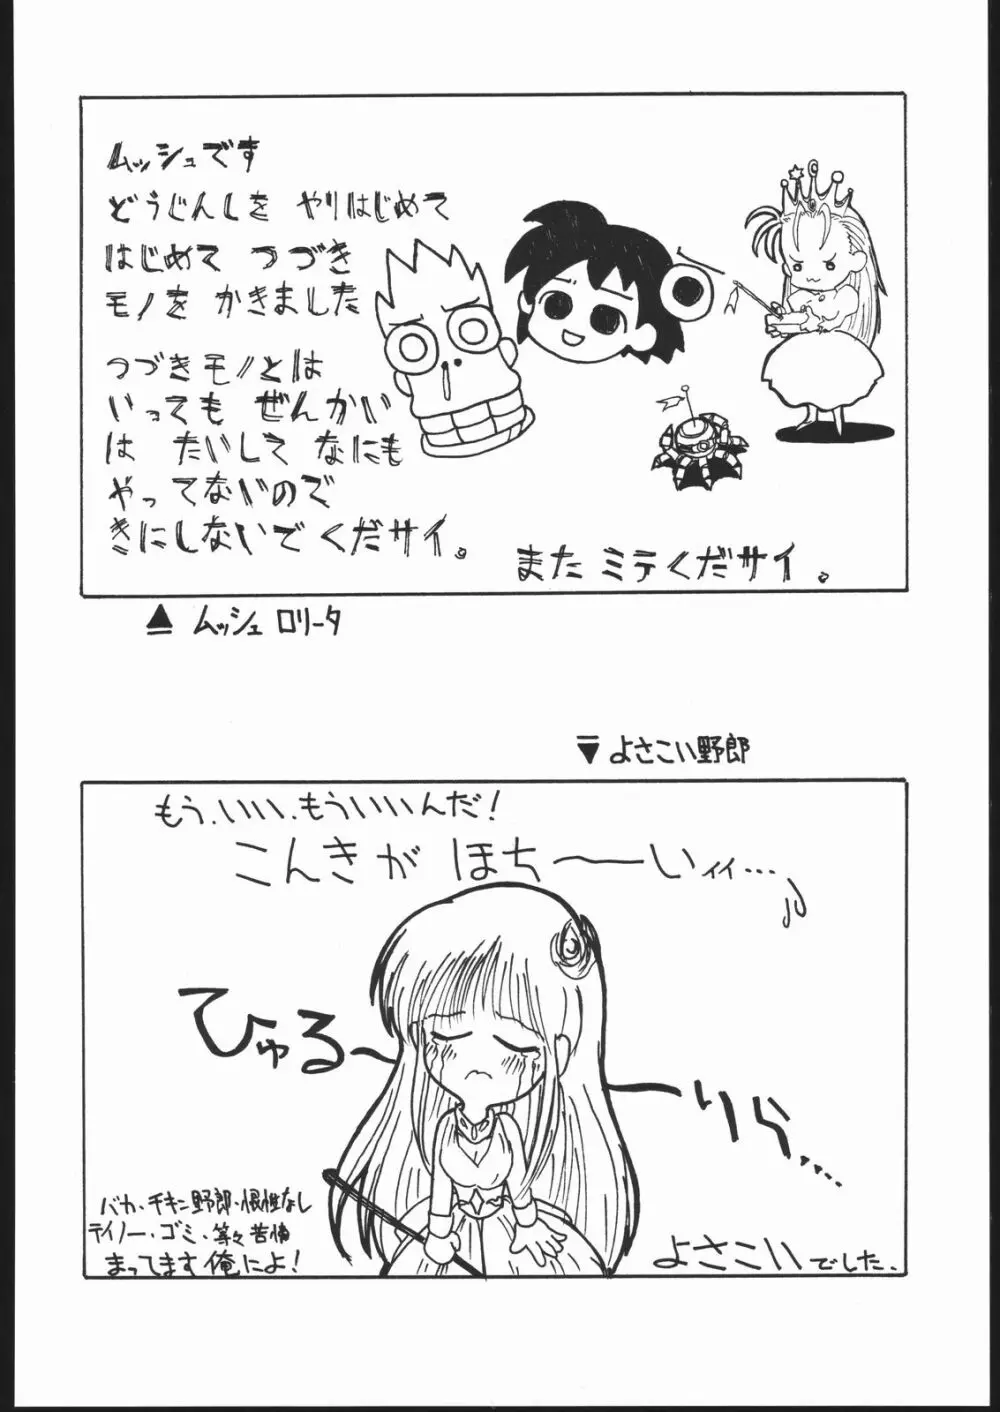 ムッシュです
どうじんしを やりはじめて
はじめて つづき
モノを かきました
つづきモノとは
いっても ぜんかい
は たいして なにも
やってないので
きにしないで くだサイ。
また ミテくだサイ。
▲ ムッシュ ロリータ
▼ よさこい野郎
もう、いい、もういいんだ!
こんきが ほち〜ーいィィ…
ひゅる〜
ーりら....
バカ・チキン野郎・根性なし
テイノー・ゴミ・等々苦情
まってます俺によ!
よさこいでした.